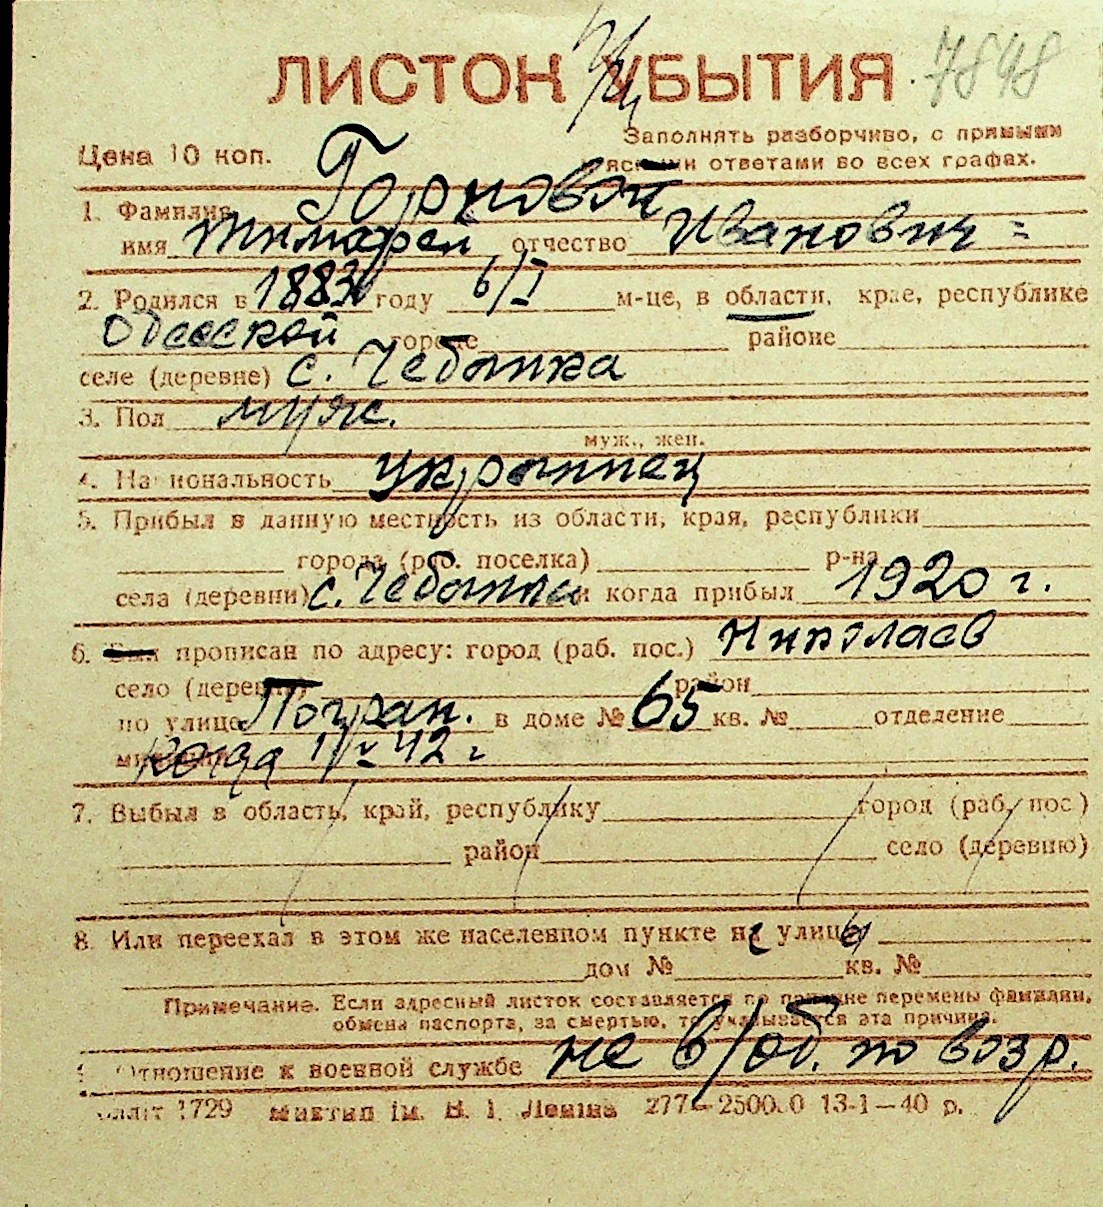 ЛИСТОК УБЫТИЯ 7848
Цена 10 коп.
Заполнять разборчиво, с прямыми
и ясными ответами во всех графах.
1. Фамилия Горновой
имя Тимофей отчество Иванович =
2. Родился в 1883 году 6/I м-це, в области, крае, республике
Одесской городе районе
селе (деревне) с. Чебанка
3. Пол муж.
муж., жен.
4. Национальность украинец
5. Прибыл в данную местность из области, края, республики
города (раб. поселка) р-на
села (деревни) с. Чебанки и когда прибыл 1920 г.
6. Был прописан по адресу: город (раб. пос.) Николаев
село (деревня) район
по улице Погран. в доме № 65 кв. № отделение
милиции когда 1/V 42 г
7. Выбыл в область, край, республику город (раб. пос.)
район село (деревню)
8. Или переехал в этом же населенном пункте на улицу
дом № кв. №
Примечание. Если адресный листок составляется по причине перемены фамилии,
обмена паспорта, за смертью, то указывается эта причина.
Отношение к военной службе не в/об. по возр.
1729 ім. В. І. Леніна 277—2500.0 13-1—40 р.